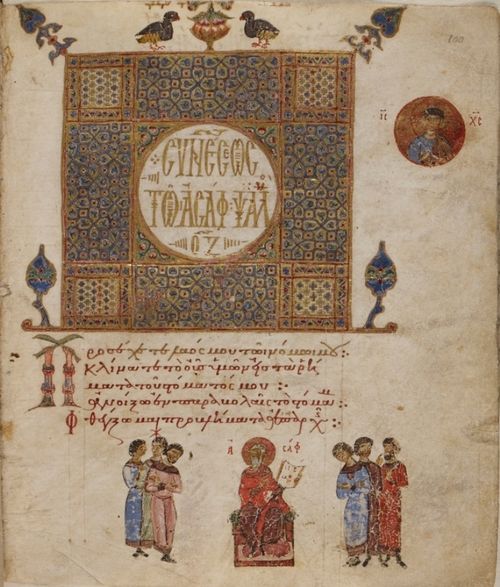 100
ΙC ΧC
CΥΝΕCΕΩC
ΤΩ ΑCΑΦ ΨΑΛ
ΟΖ
Προσέχετε λαός μου τῶ νόμω μου:
Κλίνατε τὸ οὖς ὑμῶν εἰς τὰ ρή
ματα τοῦ στόματός μου
Ἀνοίξω ἐν παραβολαῖς τὸ στόμα μ:
Φθέγξομαι προβλήματα ἀπ ἀρχ:
Α CΑΦ